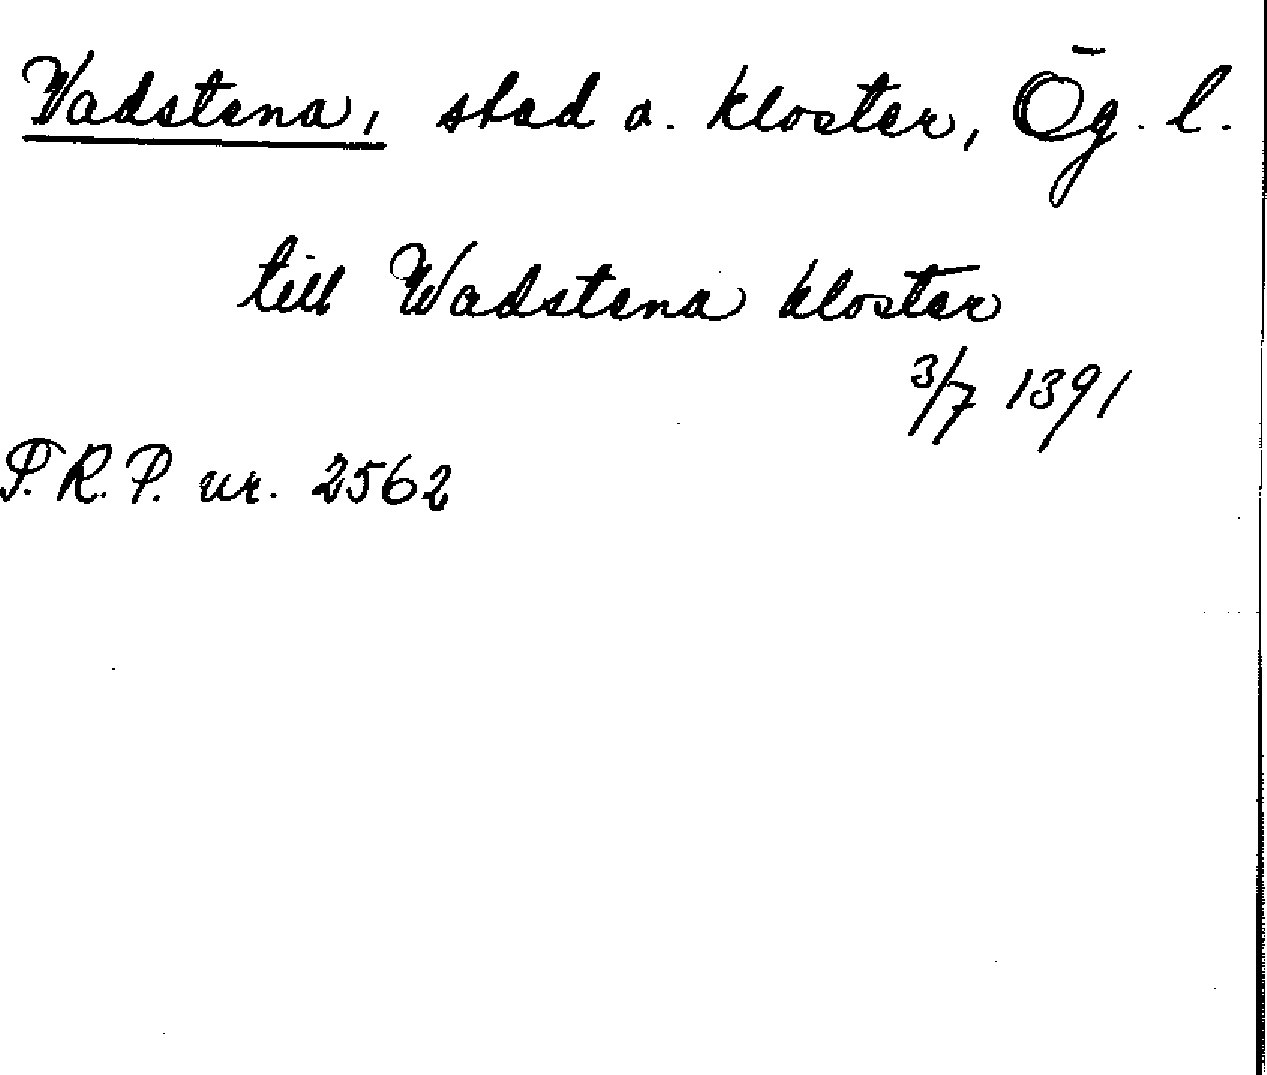 Wadstena, stad o. kloster, Ög. l.
till Wadstena kloster
3/7 1391
P.R.P. nr. 2562